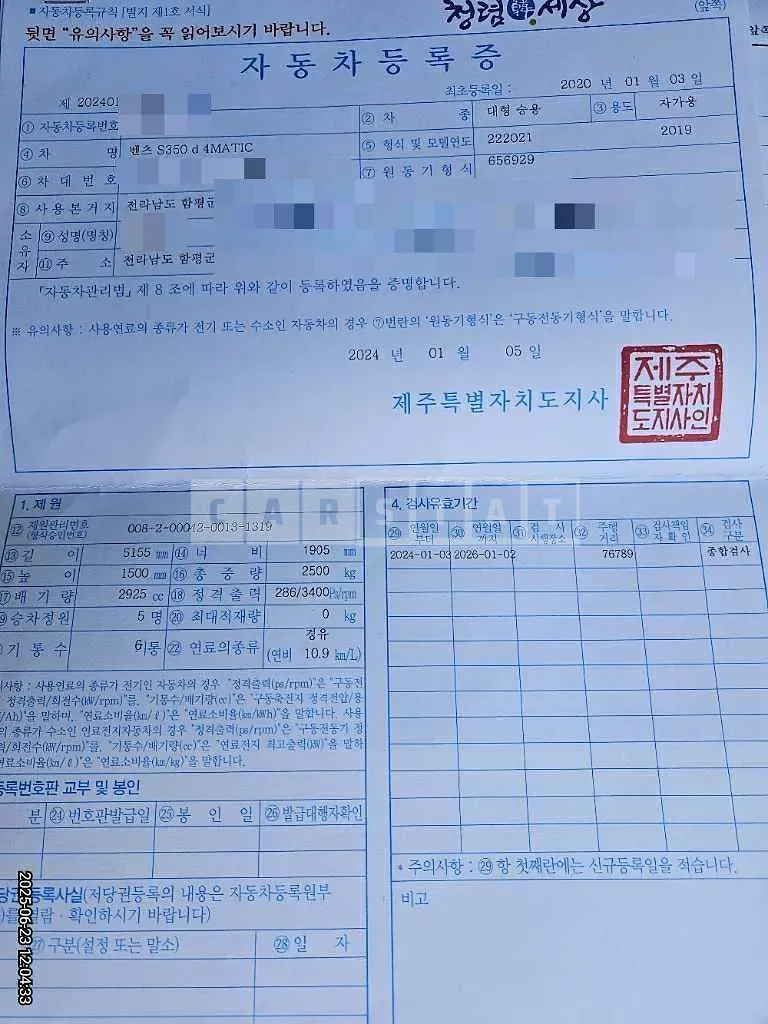 ■ 자동차등록규칙 [별지 제1호 서식]
청렴 세상
(앞쪽)
뒷면 "유의사항"을 꼭 읽어보시기 바랍니다.
자동차등록증
제 202401
최초등록일 : 2020 년 01 월 03 일
① 자동차등록번호 ② 차 종 대형 승용 ③ 용도 자가용
④ 차 명 벤츠 S350 d 4MATIC ⑤ 형식 및 모델연도 222021 2019
⑥ 차 대 번 호 ⑦ 원 동 기 형 식 656929
⑧ 사 용 본 거 지 전라남도 함평군
소유자 ⑨ 성명(명칭)
⑪ 주 소 전라남도 함평군
「자동차관리법」 제 8 조에 따라 위와 같이 등록하였음을 증명합니다.
※ 유의사항 : 사용연료의 종류가 전기 또는 수소인 자동차의 경우 ⑦번란의 '원동기형식'은 '구동전동기형식'을 말합니다.
2024 년 01 월 05 일
제주특별자치도지사
제주
특별자치
도지사인
CARSTAT
1. 제 원
⑫ 제원관리번호
(형식승인번호)
008-2-00042-0013-1319
⑬ 길 이 5155 mm ⑭ 너 비 1905 mm
⑮ 높 이 1500 mm ⑯ 총 중 량 2500 kg
⑰ 배 기 량 2925 cc ⑱ 정 격 출 력 286/3400Ps/rpm
⑲ 승차정원 5 명 ⑳ 최대적재량 0 kg
기 통 수 6기통 ㉒ 연료의종류 경유
(연비 10.9 km/L)
사항 : 사용연료의 종류가 전기인 자동차의 경우 "정격출력(ps/rpm)"은 "구동전
정격출력/회전수(kW/rpm)"를, "기통수/배기량(cc)"은 "구동축전지 정격전압/용
/Ah)"을 말하며, "연료소비율(km/ℓ)"은 "연료소비율(km/kWh)"을 말합니다. 사용
의 종류가 수소인 연료전지자동차의 경우 "정격출력(ps/rpm)"은 "구동전동기 정
력/회전수(kW/rpm)"를, "기통수/배기량(cc)"은 "연료전지 최고출력(kW)"을 말하
연료소비율(km/ℓ)"은 "연료소비율(km/kg)"을 말합니다.
등록번호판 교부 및 봉인
분 ㉔ 번호판발급일 ㉕ 봉 인 일 ㉖ 발급대행자확인
당권등록사실(저당권등록의 내용은 자동차등록원부
)를 열람ㆍ확인하시기 바랍니다)
㉗ 구분(설정 또는 말소) ㉘ 일 자
4. 검사유효기간
㉙ 연월일부터 ㉚ 연월일까지 ㉛ 검사시행장소 ㉜ 주행거리 ㉝ 검사책임자확인 ㉞ 검사구분
2024-01-03 2026-01-02 76789 종합검사
* 주의사항 : ㉙ 항 첫째란에는 신규등록일을 적습니다.
비고
2025-06-23 12:04:33